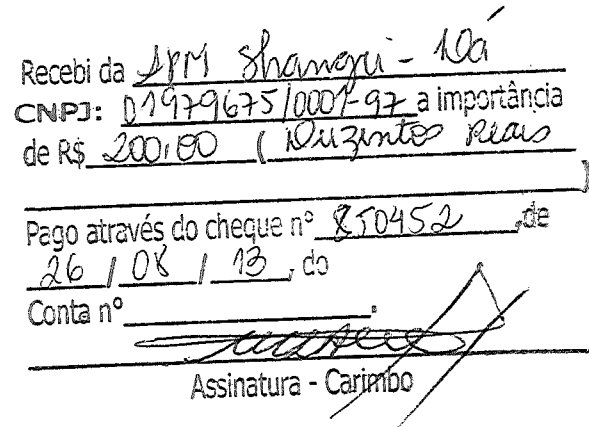 Recebi da APM Shangri - Lá
CNPJ: 01979675/0001-97 a importância
de R$ 200,00 ( Duzentos Reais
)
Pago através do cheque nº 850452 ,de
26 / 08 / 13 , do
Conta nº .
Assinatura - Carimbo